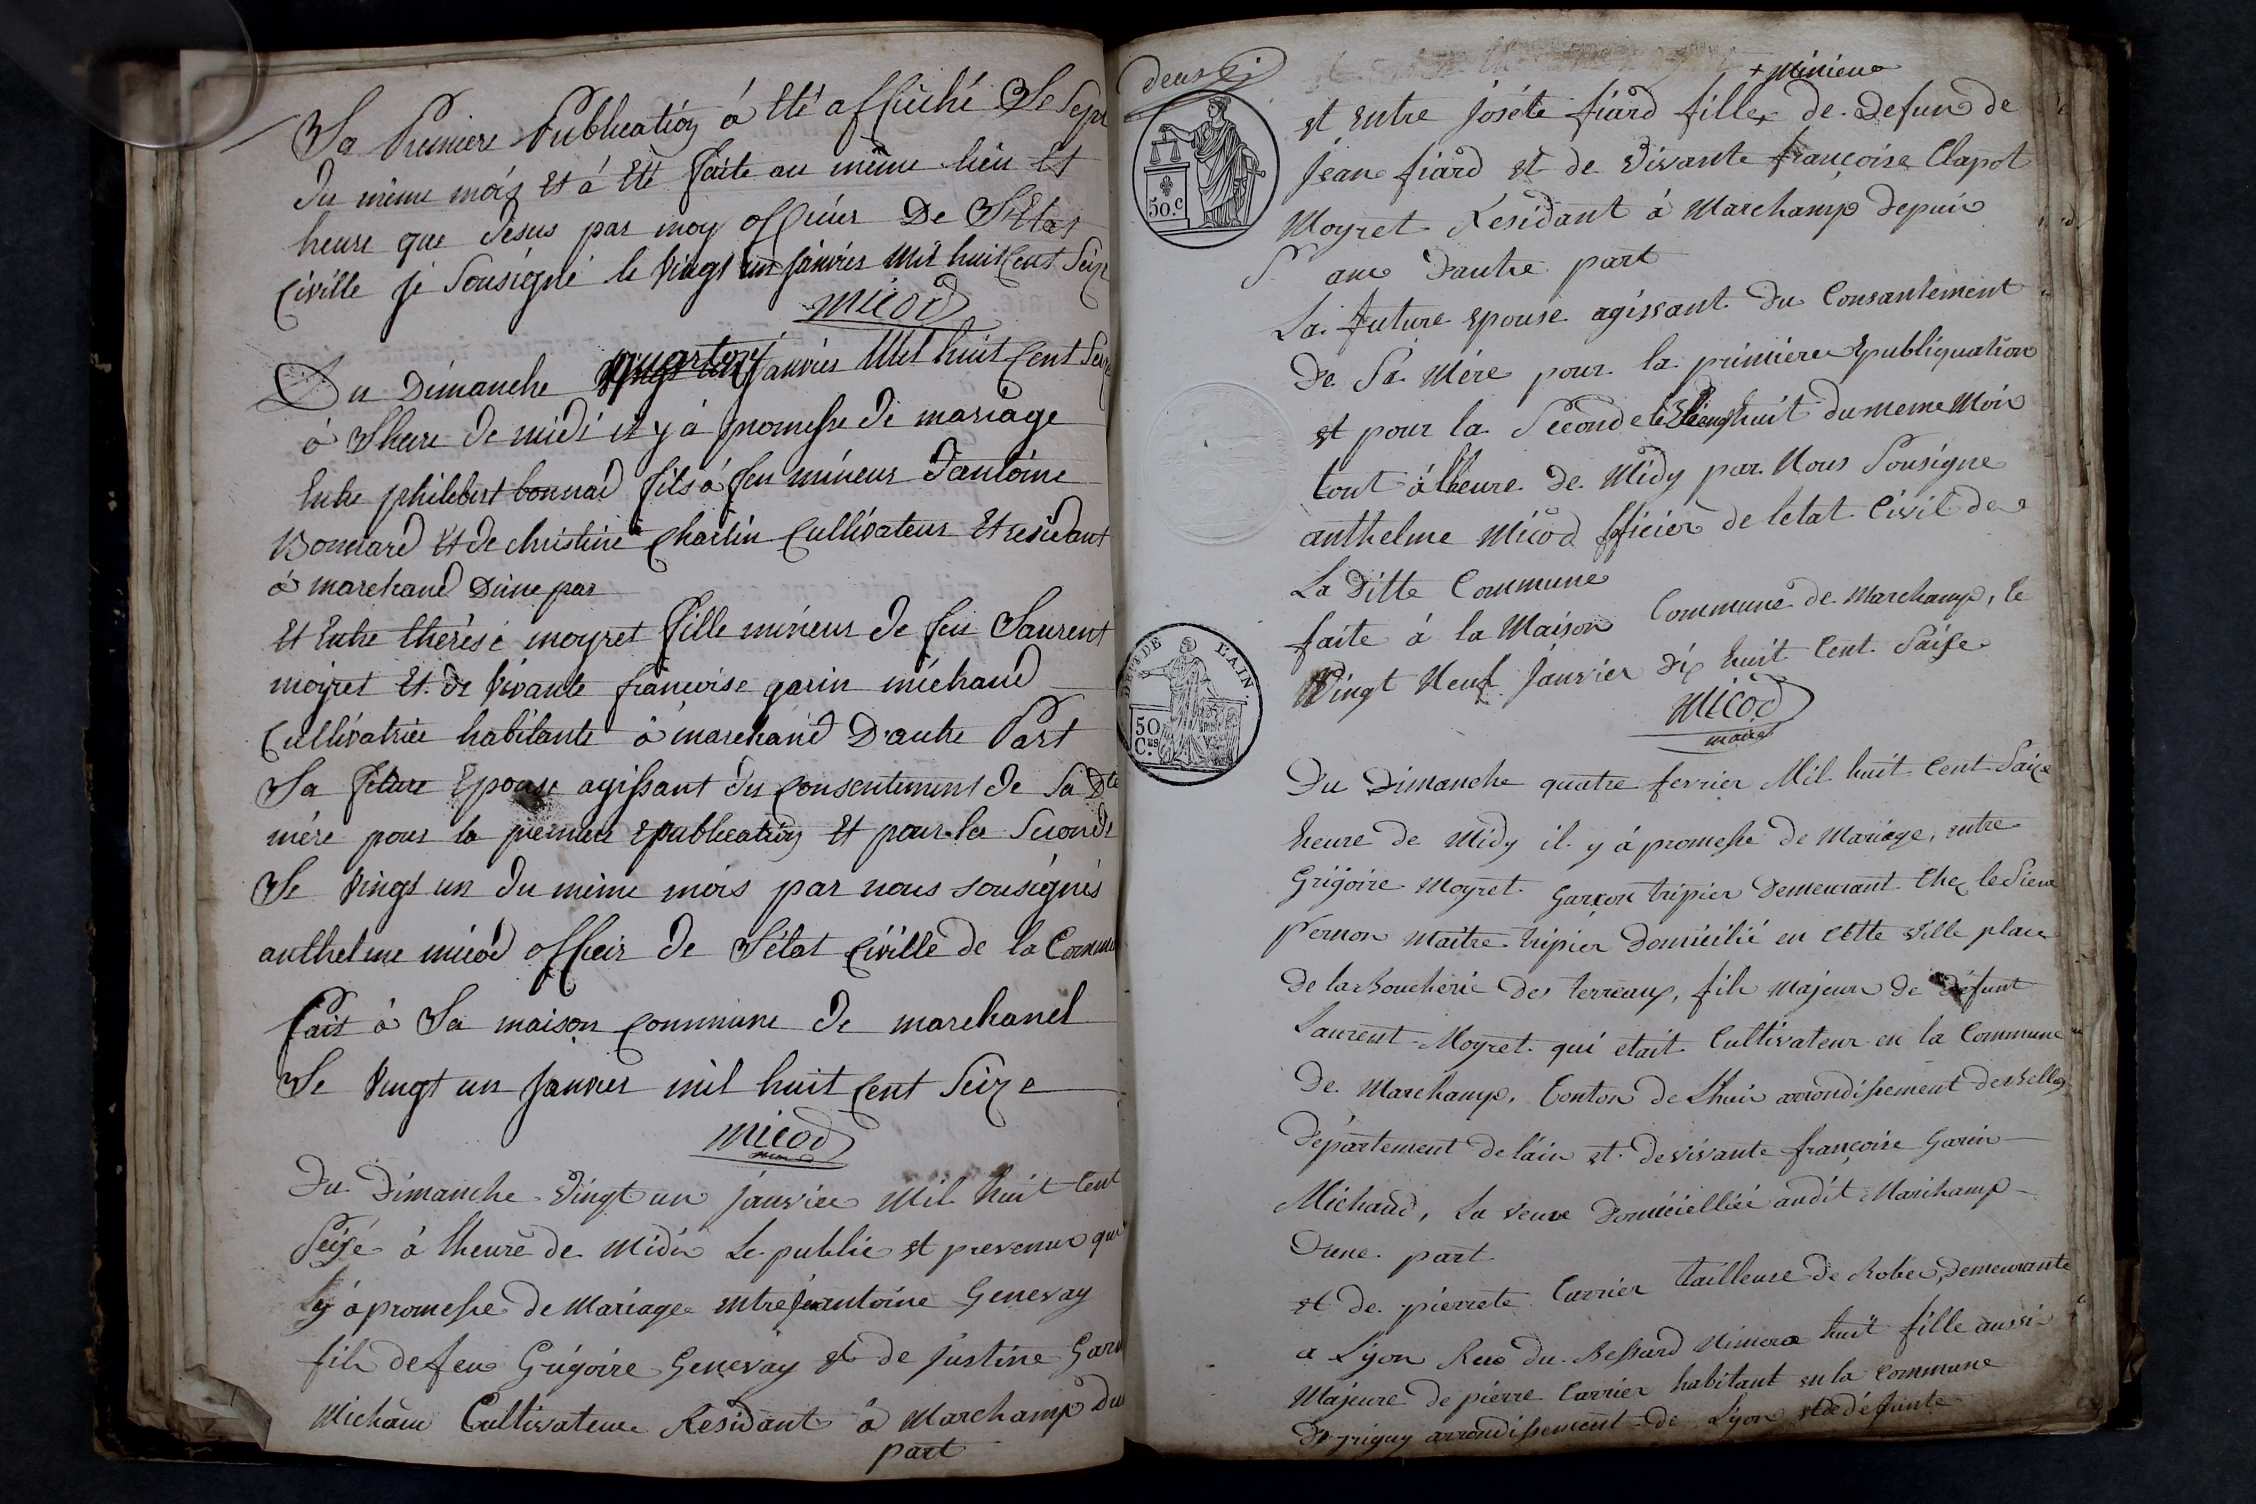 La Premiere Publication á Eté affiché Le Sept
du même mois et á Eté faite au même lieu Et
heure que desus par moy officier De L'Etat
Civille je Sousigné le vingt un janvier Mil huit Cent Seize
micod
Du Dimanche quatorze janvier Mil huit Cent Seize
á L'heure de midi il y á promesse de mariage
Entre philibert bonnard fils á feu mineur D'antoine
Bonnard Et de christine Charlin Cultivateur Et residant
á marchand D'une par
Et Entre therèse moyret fille mineur de feu Laurent
moyret Et de vivante françoise garin michaud
Cultivatrice habitante á marchand D'autre Part
La future Epouse agissant du Consentement de Sa Dte
mére pour la premiere epublication Et pour la Seconde
Le vingt un du même mois par nous sousignés
anthelme micod officir de L'état Civille de la Comm
fait á La maison Commune de marchand
Le vingt un Janvier mil huit Cent Seize
micod
Du Dimanche vingt un janvier Mil huit Cent
Seize á lheure de Midi Le public et prevenue que
il y á promesse de Mariage entre antoine Genevay
fils de feu Grégoire Genevay et de justine Garin
Michau Cultivateur Residant á Marchamp dune
part
deux
+ Minieur
et entre joséte fiard fille + de Defun de
jean fiard et de vivante françoise Clapot
Moyret Residant á Marchamp depuis
ans d'autre part
La future epouse agissant du Consantement
de Sa Mére pour la primiere epubliquation
et pour la Seconde le vingt huit du meme Mois
tout á lheure de Midy par Nous Sousigne
anthelme Micod fficier de letat Civil de
La ditte Commune
faite á la Maison Commune de Marchamp, le
Vingt Neuf janvier dix huit Cent Saise
micod
maire
Du Dimanche quatre fevrier Mil huit Cent Saize
heure de Midy il y á promesse de Mariage, entre
Grégoire Moyret Garçon tripier Demeurant chez le Sieur
Pernon maitre tripier Domicilié en cette ville place
de la Boucherie des terreaux, fils Majeur de défunt
Laurent Moyret qui etait Cultivateur en la Commune
de Marchamp, Conton de Lhuis arrondissement de Belley
département de lain et de vivante françoise Garin
Michaud, La veuve Domicielliée audit Marchamp
Dune part
et de pierrete Carrier tailleuse de Robes, demeurante
a Lyon Rue du Bessard Nimero huit fille aussi
Majeure de pierre Carrier habitant en la Commune
de grigny arrondissement de Lyon et de défunte
50.C
DEPT DE L'AIN.
50 Cmes